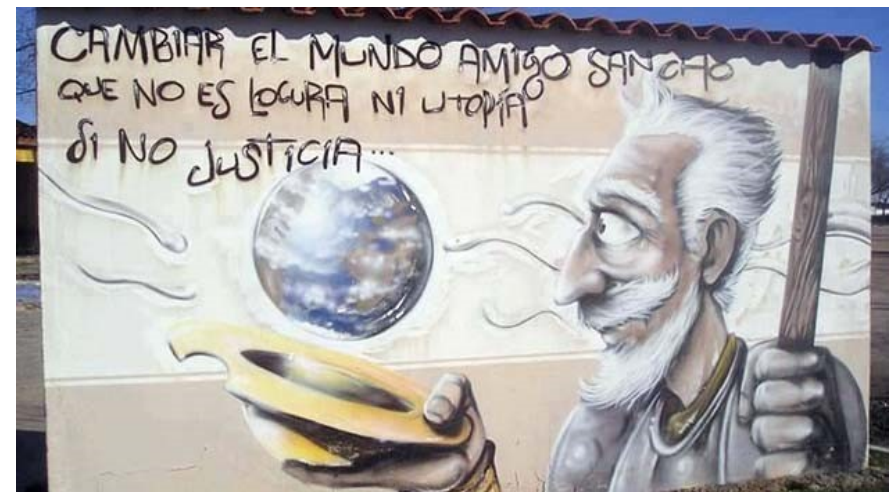 CAMBIAR EL MUNDO AMIGO SANCHO
QUE NO ES LOCURA NI UTOPÍA
SI NO JUSTICIA...